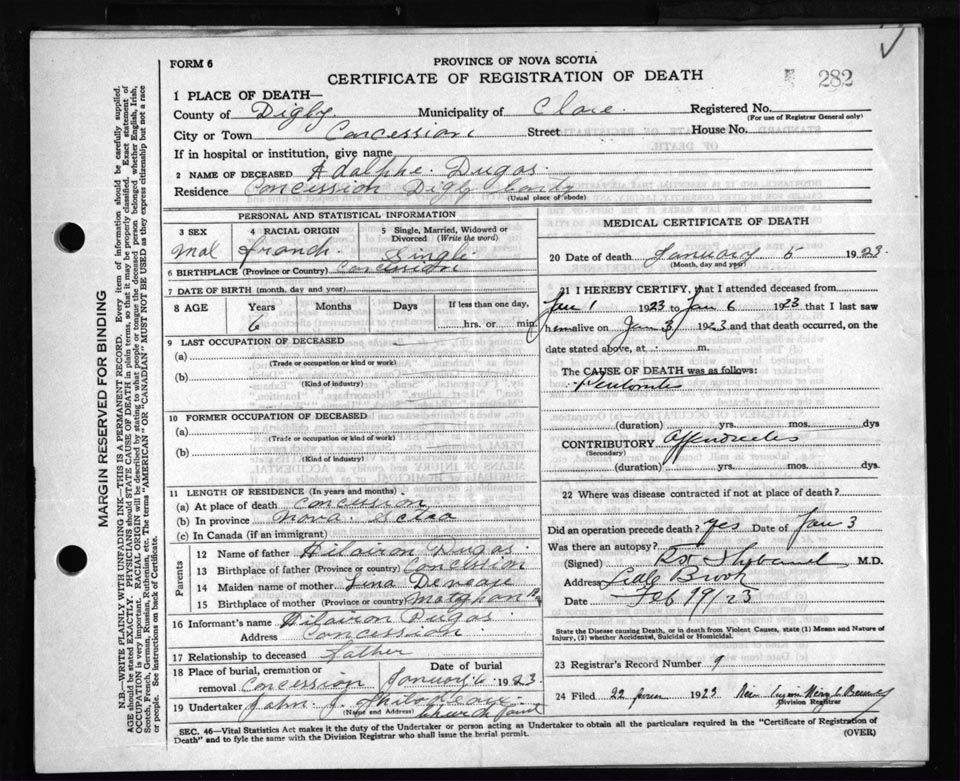 FORM 6
PROVINCE OF NOVA SCOTIA
CERTIFICATE OF REGISTRATION OF DEATH
282
1 PLACE OF DEATH—
County of Digby Municipality of Clare Registered No.
(For use of Registrar General only)
City or Town Concession Street House No.
If in hospital or institution, give name
2 NAME OF DECEASED Adolphe Dugas
Residence Concession Digby
(Usual place of abode)
PERSONAL AND STATISTICAL INFORMATION
3 SEX 4 RACIAL ORIGIN 5 Single, Married, Widowed or Divorced (Write the word)
Mal french Single
6 BIRTHPLACE (Province or Country) Concession
7 DATE OF BIRTH (month, day and year)
8 AGE Years Months Days If less than one day,
6 hrs. or min.
9 LAST OCCUPATION OF DECEASED
(a)
(Trade or occupation or kind or work)
(b)
(Kind of industry)
10 FORMER OCCUPATION OF DECEASED
(a)
(Trade or occupation or kind of work)
(b)
(Kind of industry)
11 LENGTH OF RESIDENCE (In years and months)
(a) At place of death Concession
(b) In province Nova
(c) In Canada (if an immigrant)
Parents
12 Name of father Hilairon Dugas
13 Birthplace of father (Province or country) Concession
14 Maiden name of mother
15 Birthplace of mother (Province or country)
16 Informant's name Hilairon Dugas
Address Concession
17 Relationship to deceased Father
18 Place of burial, cremation or removal Concession Date of burial January 6 1923
19 Undertaker John J.
(Name and Address) Church Point
MEDICAL CERTIFICATE OF DEATH
20 Date of death January 5 1923
(Month, day and year)
21 I HEREBY CERTIFY, that I attended deceased from
Jan 1 1923 to Jan 6 1923 that I last saw
h alive on Jan 3 1923 and that death occurred, on the
date stated above, at m.
The CAUSE OF DEATH was as follows:
(duration) yrs. mos. dys
CONTRIBUTORY
(Secondary)
(duration) yrs. mos. dys.
22 Where was disease contracted if not at place of death?
Did an operation precede death? yes Date of Jan 3
Was there an autopsy?
(Signed) M.D.
Address Brook
Date Feb 19/23
State the Disease causing Death, or in death from Violent Causes, state (1) Means and Nature of
Injury, (2) whether Accidental, Suicidal or Homicidal.
23 Registrar's Record Number 9
24 Filed 22 1923
Division Registrar
SEC. 46—Vital Statistics Act makes it the duty of the Undertaker or person acting as Undertaker to obtain all the particulars required in the "Certificate of Registration of
Death" and to fyle the same with the Division Registrar who shall issue the burial permit. (OVER)
MARGIN RESERVED FOR BINDING
N.B.—WRITE PLAINLY WITH UNFADING INK—THIS IS A PERMANENT RECORD. Every item of information should be carefully supplied.
AGE should be stated EXACTLY. PHYSICIANS should STATE CAUSE OF DEATH in plain terms, so that it may be properly classified. Exact statement of
OCCUPATION is very important. RACIAL ORIGIN will be described by stating to what people or tongue the deceased person belonged whether English, Irish,
Scotch, French, German, Russian, Ruthenian, etc. The terms "AMERICAN" OR "CANADIAN" MUST NOT BE USED as they express citizenship but not a race
or people. See instructions on back of Certificate.